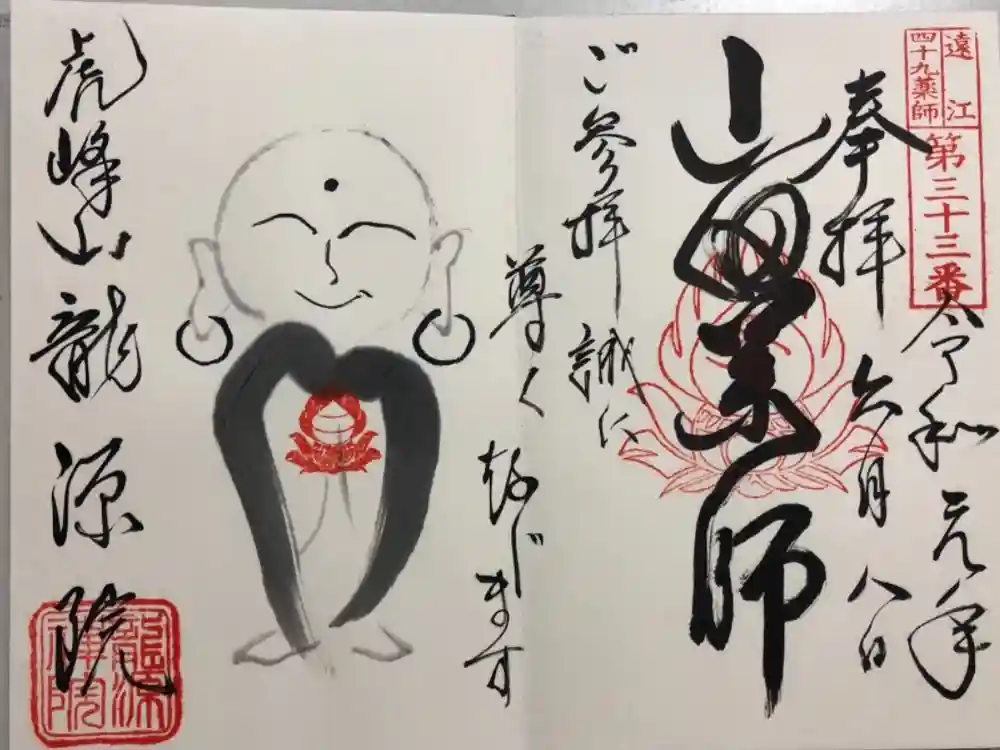 遠江
四十九薬師
第三十三番
令和元年
六月八日
奉拝
薬師
ご参拝 誠に
尊く存じます
虎峰山龍源院